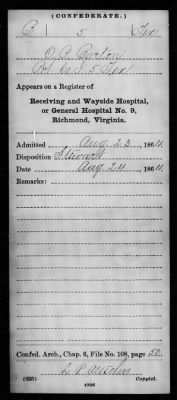 (CONFEDERATE.)
B 5 Tex
Appears on a Register of
Receiving and Wayside Hospital,
or General Hospital No. 9,
Richmond, Virginia.
Admitted Aug 23, 1864.
Disposition
Date Aug 24, 1864
Remarks:
Confed. Arch., Chap. 6, File No. 108, page
(635) Copyist.